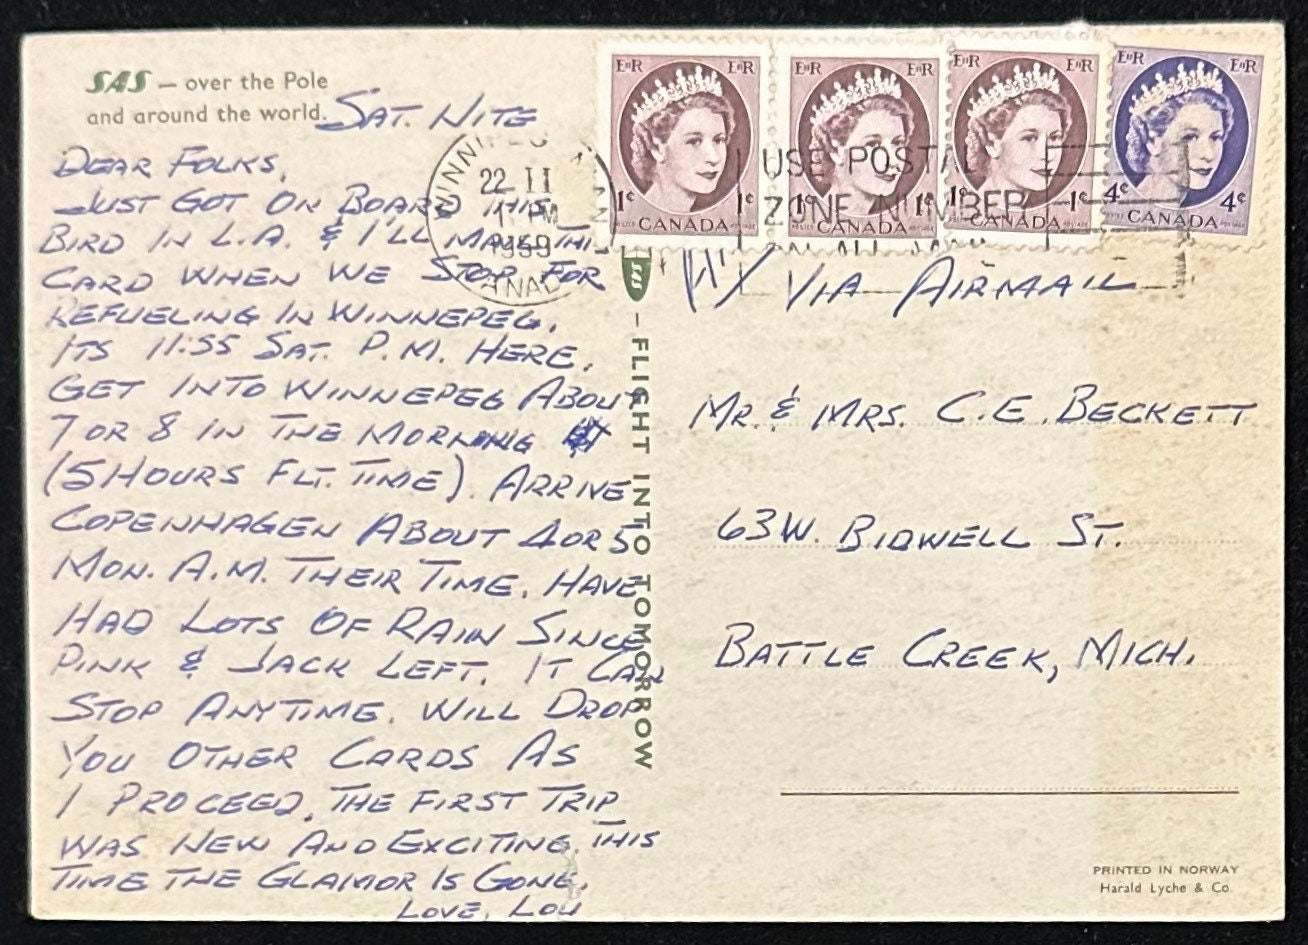 SAS — over the Pole
and around the world.
SAT. NITE
DEAR FOLKS,
JUST GOT ON BOARD THIS
BIRD IN L.A. & I'LL MAIL THIS
CARD WHEN WE STOP FOR
REFUELING IN WINNEPEG.
ITS 11:55 SAT. P.M. HERE.
GET INTO WINNEPEG ABOUT
7 OR 8 IN THE MORNING
(5 HOURS FLT. TIME). ARRIVE
COPENHAGEN ABOUT 4 OR 5
MON. A.M. THEIR TIME. HAVE
HAD LOTS OF RAIN SINCE
PINK & JACK LEFT. IT CAN
STOP ANYTIME. WILL DROP
YOU OTHER CARDS AS
I PROCEED. THE FIRST TRIP
WAS NEW AND EXCITING. THIS
TIME THE GLAMOR IS GONE.
LOVE, LOU
SAS – FLIGHT INTO TOMORROW
WINNIPEG
22 II
PM
1959
CANADA
EIIR EIIR
1¢ 1¢
POSTES CANADA POSTAGE
EIIR EIIR
1¢ 1¢
POSTES CANADA POSTAGE
EIIR EIIR
1¢ 1¢
CANADA POSTAGE
EIIR EIIR
4¢ 4¢
POSTES CANADA POSTAGE
USE POSTAL
ZONE NUMBER
ON ALL MAIL
VIA AIRMAIL
MR. & MRS. C.E. BECKETT
63 W. BIDWELL ST.
BATTLE CREEK, MICH.
PRINTED IN NORWAY
Harald Lyche & Co.